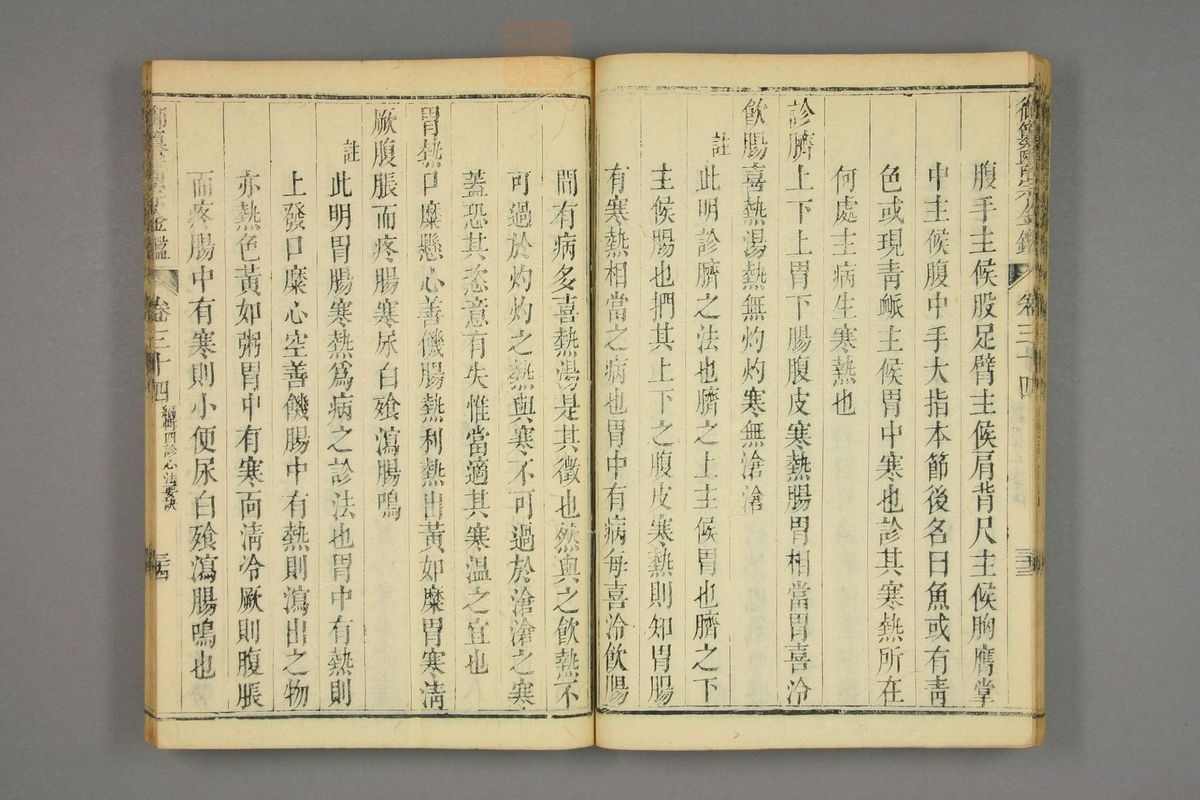 御纂醫宗金鑑 卷三十四
腹手主候股足臂主候肩背尺主候胸膺掌
中主候腹中手大指本節後名曰魚或有青
色或現青䘑主候胃中寒也診其寒熱所在
何處主病生寒熱也
診臍上下上胃下腸腹皮寒熱腸胃相當胃喜冷
飲腸喜熱湯熱無灼灼寒無滄滄
註
此明診臍之法也臍之上主候胃也臍之下
主候腸也捫其上下之腹皮寒熱則知胃腸
有寒熱相當之病也胃中有病每喜冷飲腸
間有病多喜熱湯是其徵也然與之飲熱不
可過於灼灼之熱與寒不可過於滄滄之寒
蓋恐其恣意有失惟當適其寒溫之宜也
胃熱口糜懸心善饑腸熱利熱出黃如糜胃寒淸
厥腹脹而疼腸寒尿白飱瀉腸鳴
註
此明胃腸寒熱爲病之診法也胃中有熱則
上發口糜心空善饑腸中有熱則瀉出之物
亦熱色黃如粥胃中有寒面淸冷厥則腹脹
而疼腸中有寒則小便尿白飱瀉腸鳴也
御纂醫宗金鑑 卷三十四 編輯四診心法要訣